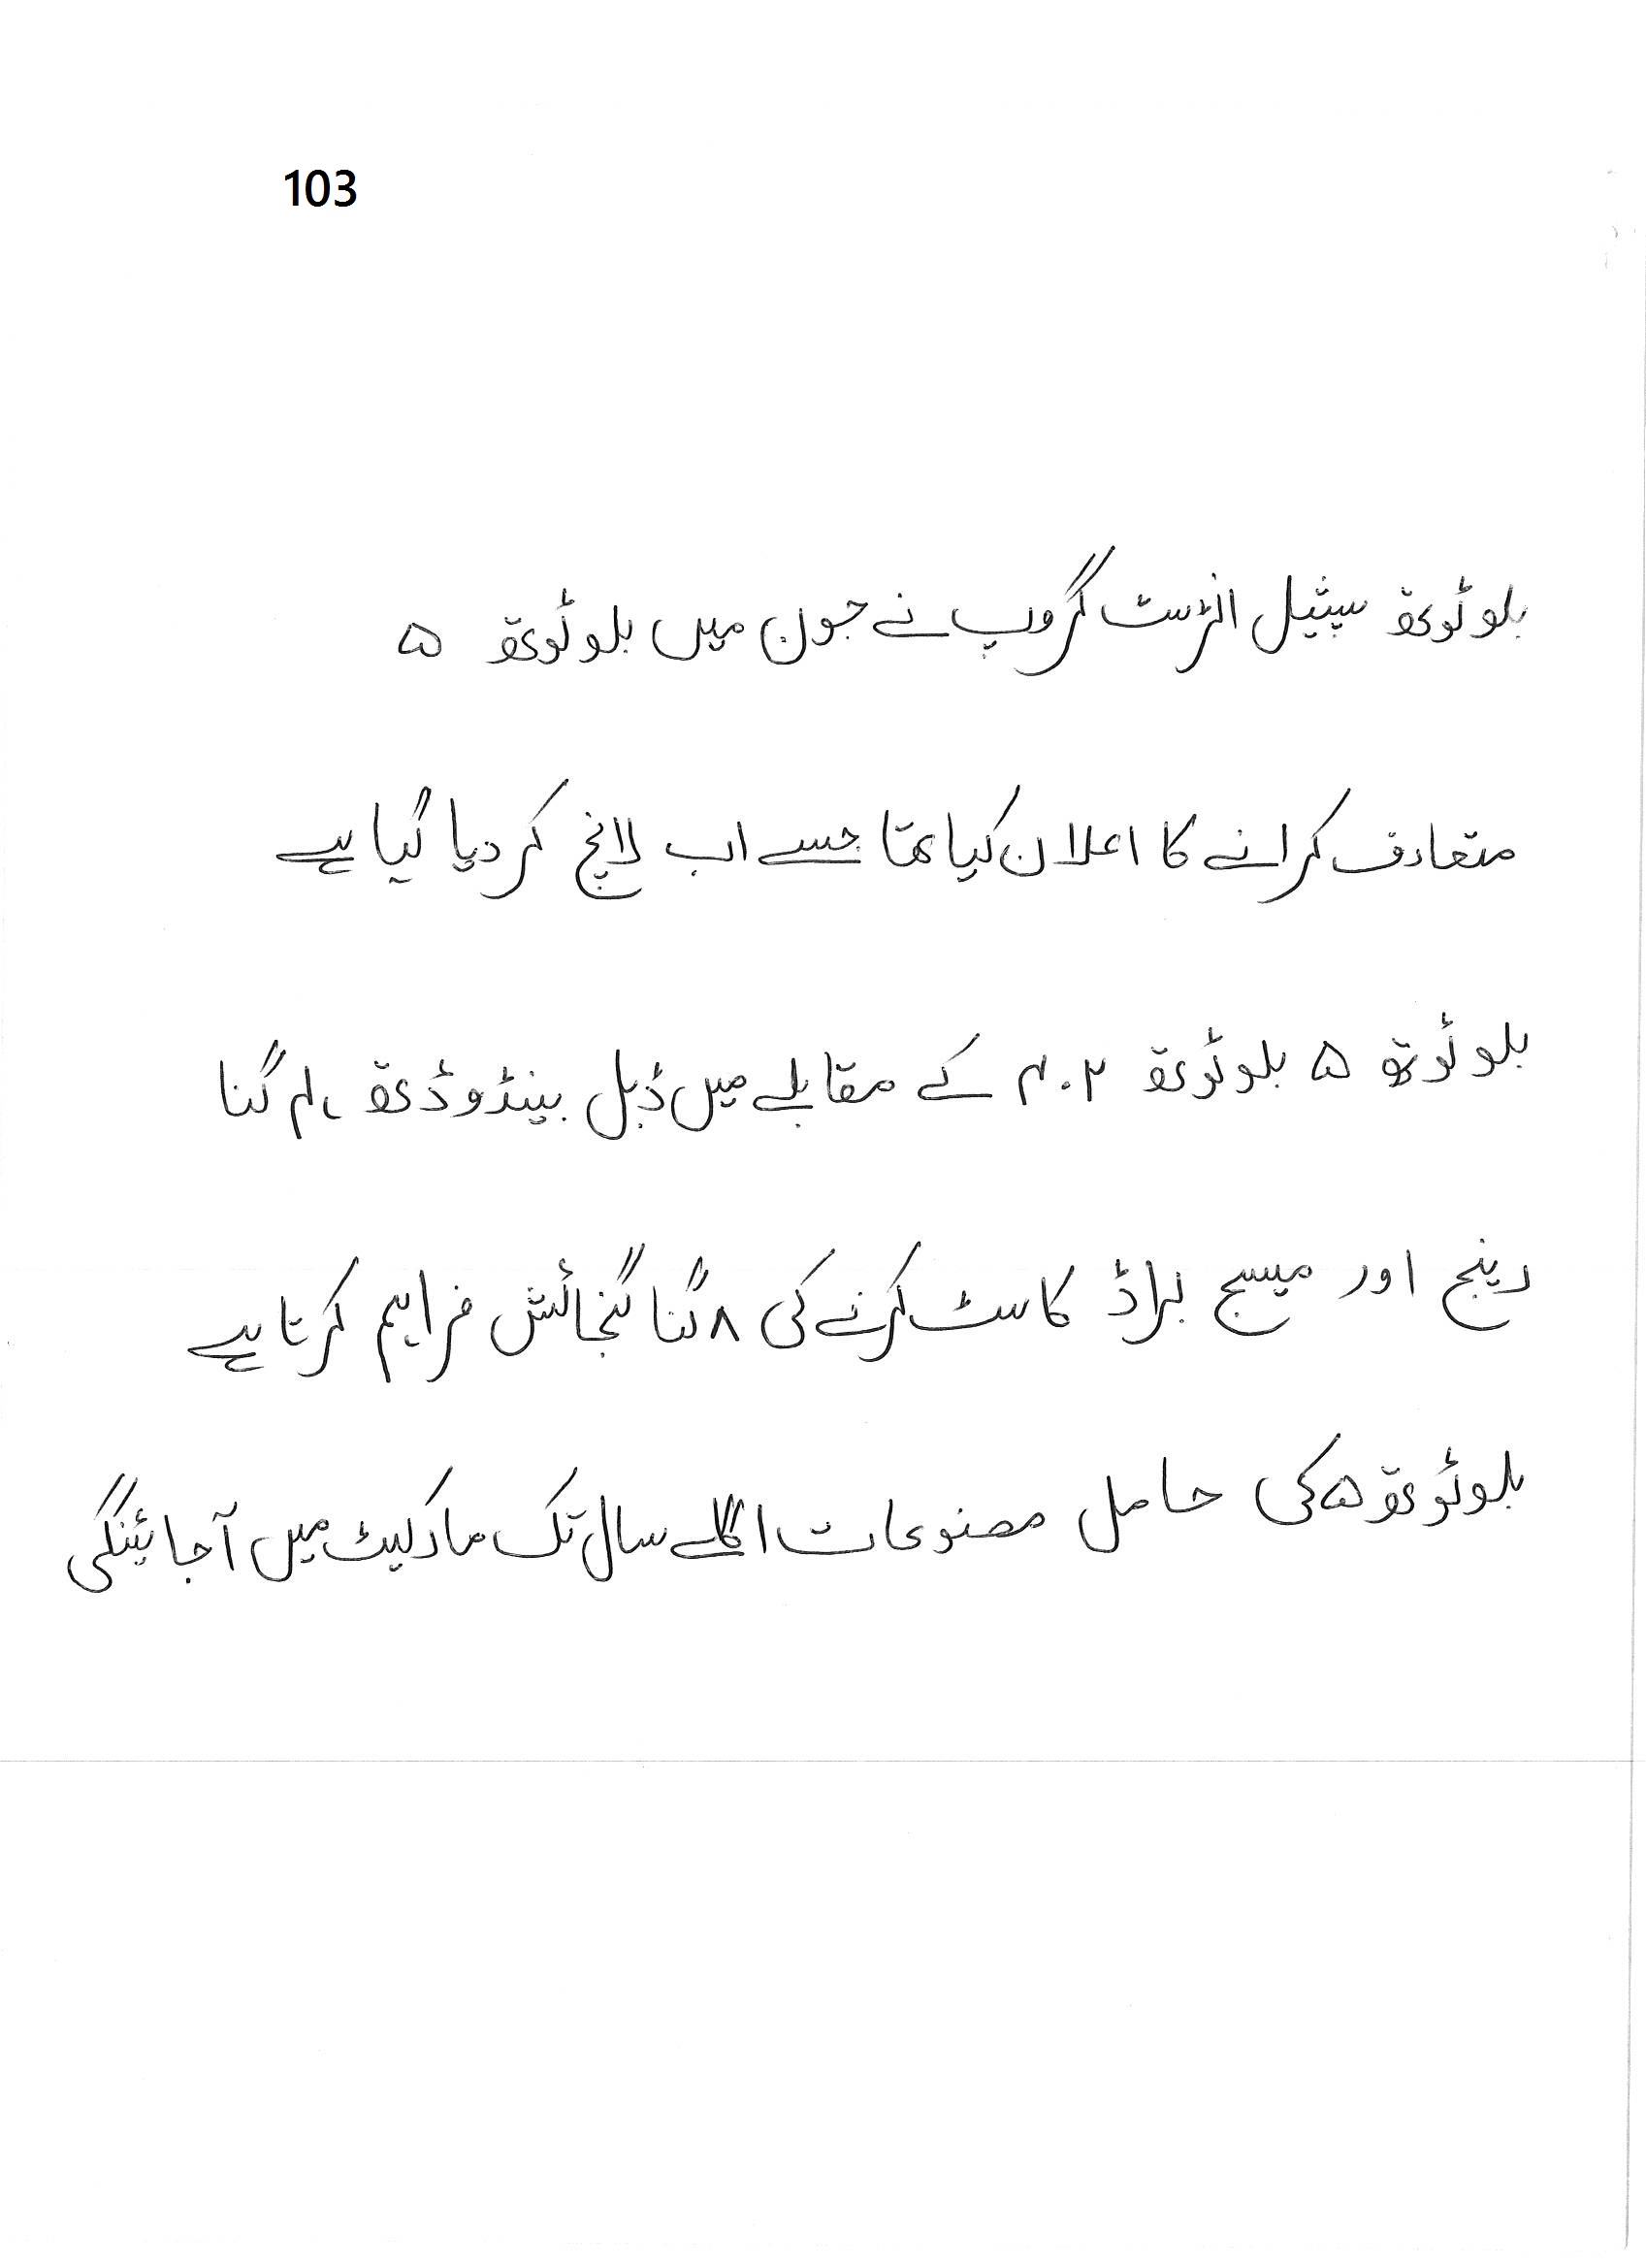 103
بلوٹوتھ سپیشل انٹرسٹ گروپ نے جون میں بلوٹوتھ ۵
متعارف کرانے کا اعلان کیا تھا جسے اب لانچ کر دیا گیا ہے
بلوٹوتھ ۵ بلوٹوتھ ۴.۲ کے مقابلے میں ڈبل بینڈوڈتھ ، ۴ گنا
رینج اور میسج براڈ کاسٹ کرنے کی ۸ گنا گنجائش فراہم کرتا ہے
بلوٹوتھ ۵ کی حامل مصنوعات اگلے سال تک مارکیٹ میں آجائینگی